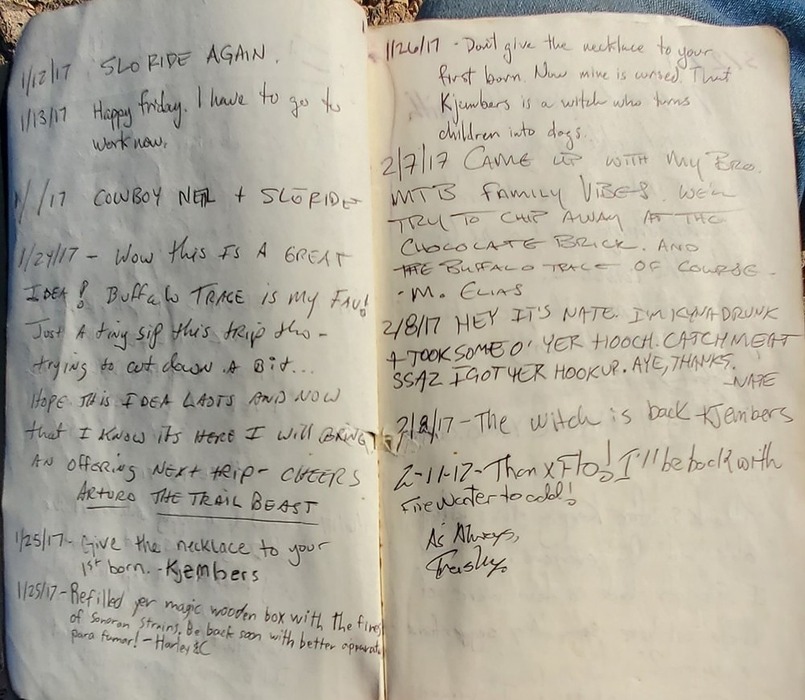 1/12/17 SLO RIDE AGAIN.
1/13/17 Happy friday. I have to go to
work now.
1/ /17 COWBOY NEIL + SLORIDE
1/24/17 - WOW this IS A GREAT
IDEA! BUFFALO TRACE is my FAV!
Just A tiny sip this trip tho-
trying to cut down A Bit...
HOPE This IDEA LASTS AND NOW
that I KNOW its HERE I Will BRING
AN OFFERING NEXT trip- CHEERS
ARTURO THE TRAIL BEAST
1/25/17- Give the necklace to your
1st born. -Kjembers
1/25/17-Refilled yer magic wooden box with the fines
of Sonoran Strains. Be back soon with better
para fumar! - Harley &C
1/26/17 - Don't give the necklace to your
first born. Now mine is cursed. That
Kjembers is a witch who turns
children into dogs.
2/7/17 CAME UP WITH MY BRO.
MTB FAMILY VIBES. WE'LL
TRY TO CHIP AWAY AT THE
CHOCOLATE BRICK. AND
THE BUFFALO TRACE OF COURSE.
- M. ELIAS
2/8/17 HEY IT'S NATE. I'M KYNA DRUNK
+ TOOK SOME O' YER HOOCH. CATCH ME AT
SSAZ I GOT YER HOOKUP. AYE, THANKS.
-NATE
2/8/17 - The witch is back -Kjembers
2-11-17- Thanx Flo! I'll be back with
Firewater to add!
As Always,